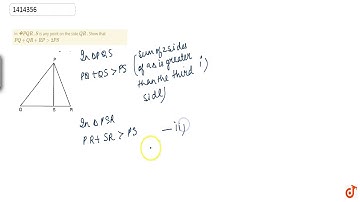 1414356
In △PQR, S is any point on the side QR. Show that
PQ + QR + RP > 2PS
P
Q
S
R
In △PQS
PQ + QS > PS (Sum of 2 sides of a △ is greater than the third side) i)
In △PSR
PR + SR > PS — ii)